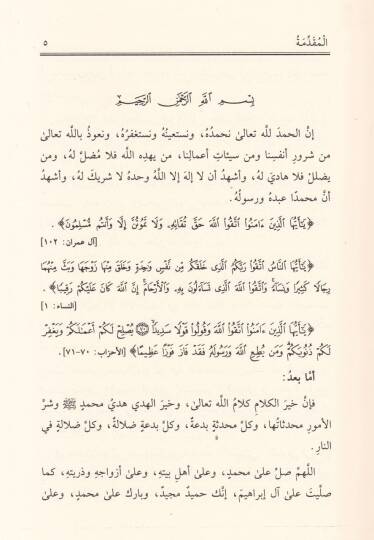 المُقَدِّمَةُ ٥
بِسْمِ اللَّهِ الرَّحْمَٰنِ الرَّحِيمِ
إنَّ الحمدَ للَّه تعالىٰ نحمدُهُ، ونستعينُهُ ونستغفرُهُ، ونعوذُ باللَّه تعالىٰ
من شرورِ أنفسِنا ومن سيئاتِ أعمالِنا، من يهدِه اللَّه فلا مُضلَّ لهُ، ومن
يضللْ فلا هاديَ لهُ، وأشهدُ أن لا إله إلا اللَّهُ وحدهُ لا شريكَ لهُ، وأشهدُ
أنَّ محمدًا عبدهُ ورسولُهُ.
﴿يَٰٓأَيُّهَا ٱلَّذِينَ ءَامَنُوا۟ ٱتَّقُوا۟ ٱللَّهَ حَقَّ تُقَاتِهِۦ وَلَا تَمُوتُنَّ إِلَّا وَأَنتُم مُّسْلِمُونَ﴾.
[آل عمران: ١٠٢]
﴿يَٰٓأَيُّهَا ٱلنَّاسُ ٱتَّقُوا۟ رَبَّكُمُ ٱلَّذِى خَلَقَكُم مِّن نَّفْسٍ وَٰحِدَةٍ وَخَلَقَ مِنْهَا زَوْجَهَا وَبَثَّ مِنْهُمَا
رِجَالًا كَثِيرًا وَنِسَآءً ۚ وَٱتَّقُوا۟ ٱللَّهَ ٱلَّذِى تَسَآءَلُونَ بِهِۦ وَٱلْأَرْحَامَ ۚ إِنَّ ٱللَّهَ كَانَ عَلَيْكُمْ رَقِيبًا﴾.
[النساء: ١]
﴿يَٰٓأَيُّهَا ٱلَّذِينَ ءَامَنُوا۟ ٱتَّقُوا۟ ٱللَّهَ وَقُولُوا۟ قَوْلًا سَدِيدًا ۝٧٠ يُصْلِحْ لَكُمْ أَعْمَٰلَكُمْ وَيَغْفِرْ
لَكُمْ ذُنُوبَكُمْ ۗ وَمَن يُطِعِ ٱللَّهَ وَرَسُولَهُۥ فَقَدْ فَازَ فَوْزًا عَظِيمًا﴾ [الأحزاب: ٧٠-٧١].
أمَّا بعدُ:
فإنَّ خيرَ الكلامِ كلامُ اللَّه تعالىٰ، وخيرَ الهدي هديُ محمدٍ ﷺ وشرَّ
الأمورِ محدثاتُها، وكلَّ محدثةٍ بدعةٌ، وكلَّ بدعةٍ ضلالةٌ، وكلَّ ضلالةٍ في
النارِ.
اللَّهمَّ صلِّ علىٰ محمدٍ، وعلىٰ أهلِ بيتِهِ، وعلىٰ أزواجِهِ وذريتِهِ، كما
صلَّيتَ علىٰ آلِ إبراهيمَ، إنَّك حميدٌ مجيدٌ، وبارك علىٰ محمدٍ، وعلىٰ